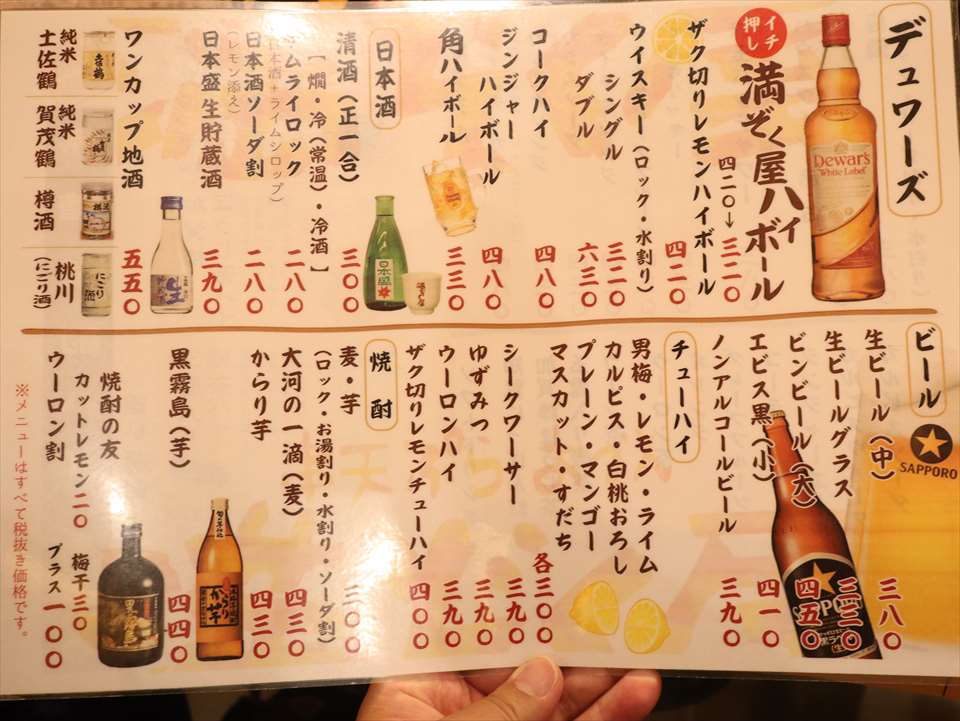 デュワーズ
イチ押し
満ぞく屋ハイボール
四二〇→三二〇
ザク切りレモンハイボール 四二〇
ウイスキー(ロック・水割り)
シングル 三二〇
ダブル 六三〇
コークハイ 四八〇
ジンジャーハイボール 四八〇
角ハイボール 三三〇
日本酒
清酒(正一合) 三〇〇
[燗・冷(常温)・冷酒]
サムライロック 二八〇
(日本酒+ライムシロップ)
日本酒ソーダ割 二八〇
(レモン添え)
日本盛生貯蔵酒 三九〇
ワンカップ地酒 五五〇
純米 土佐鶴
純米 賀茂鶴
樽酒
桃川(にごり酒)
Dewar's
White Label
日本盛
生
にごり酒
ビール
SAPPORO
生ビール(中) 三八〇
生ビールグラス 三三〇
ビンビール(大) 四五〇
エビス黒(小) 四一〇
ノンアルコールビール 三九〇
チューハイ
男梅・レモン・ライム
カルピス・白桃おろし
プレーン・マンゴー
マスカット・すだち
各三〇〇
シークワーサー 三九〇
ゆずみつ 三九〇
ウーロンハイ 三九〇
ザク切りレモンチューハイ 四五〇
焼酎
麦・芋 三〇〇
(ロック・お湯割り・水割り・ソーダ割)
大河の一滴(麦) 四三〇
からり芋 四三〇
黒霧島(芋) 四四〇
焼酎の友
カットレモン二〇 梅干三〇
ウーロン割 プラス一〇〇
※メニューはすべて税抜き価格です。
からり芋
黒霧島